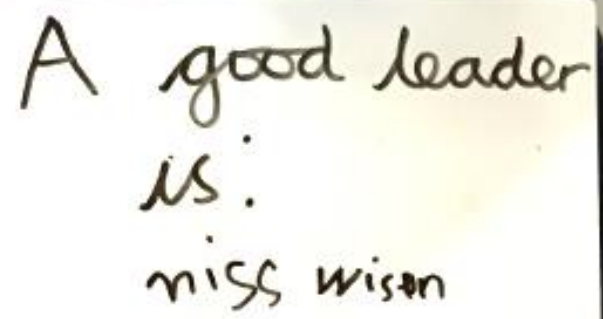 A good leader
is:
miss wison